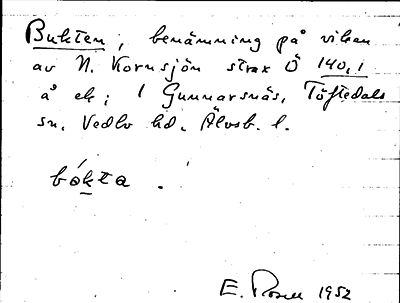 Bukten; benämning på viken
av N. Kornsjön strax Ö 140,1
å ek; 1 Gunnarsnäs, Töftedals
sn. Vedbo hd. Älvsb. l.
bókta.
E. Rosell 1952